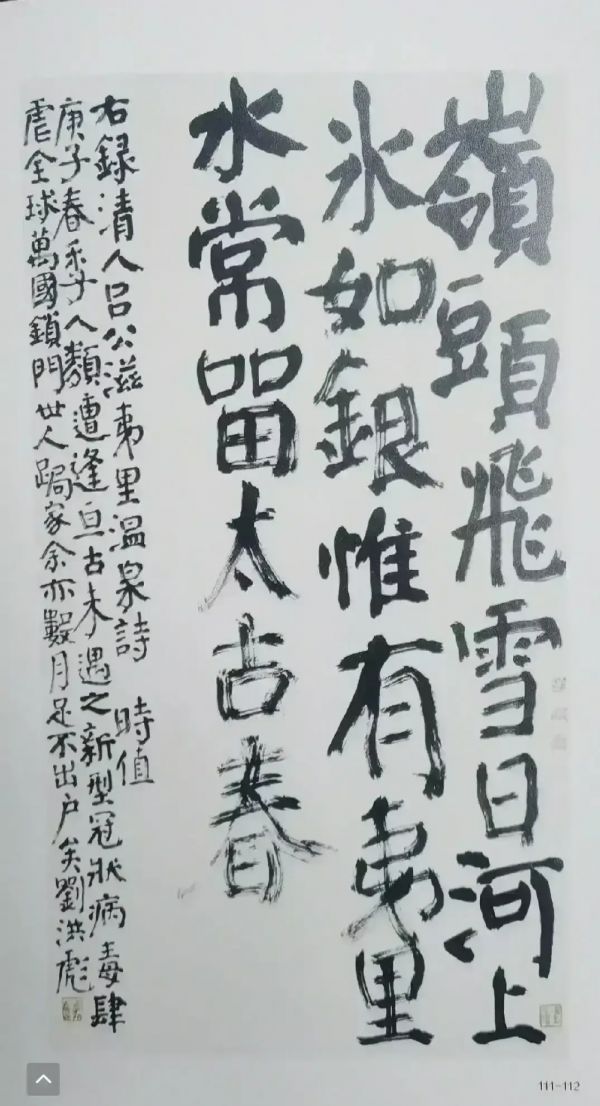 嶺頭飛雪日河上
氷如銀惟有夷里
水常留太古春
右録清人吕公滋夷里温泉詩 時值
庚子春季人類遭逢亘古未遇之新型冠狀病毒肆
虐全球萬國鎖門世人跼家余亦數月足不出户矣劉洪彪
111-112